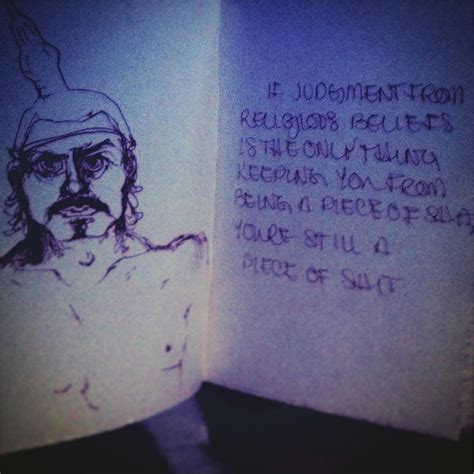 IF JUDGMENT FROM
RELIGIOUS BELIEFS
IS THE ONLY THING
KEEPING YOU FROM
BEING A PIECE OF SHIT,
YOU'RE STILL A
PIECE OF SHIT.